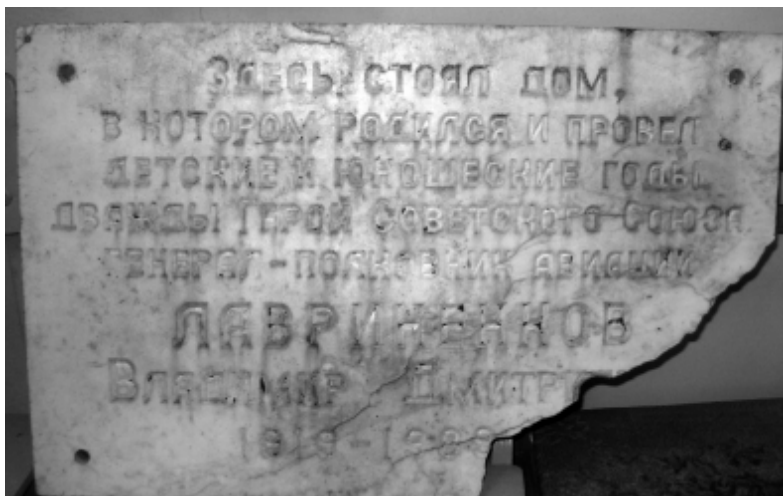 Здесь стоял дом,
в котором родился и провел
детские и юношеские годы
дважды Герой Советского Союза
генерал-полковник авиации
ЛАВРИНЕНКОВ
Владимир Дмитр
1919-198